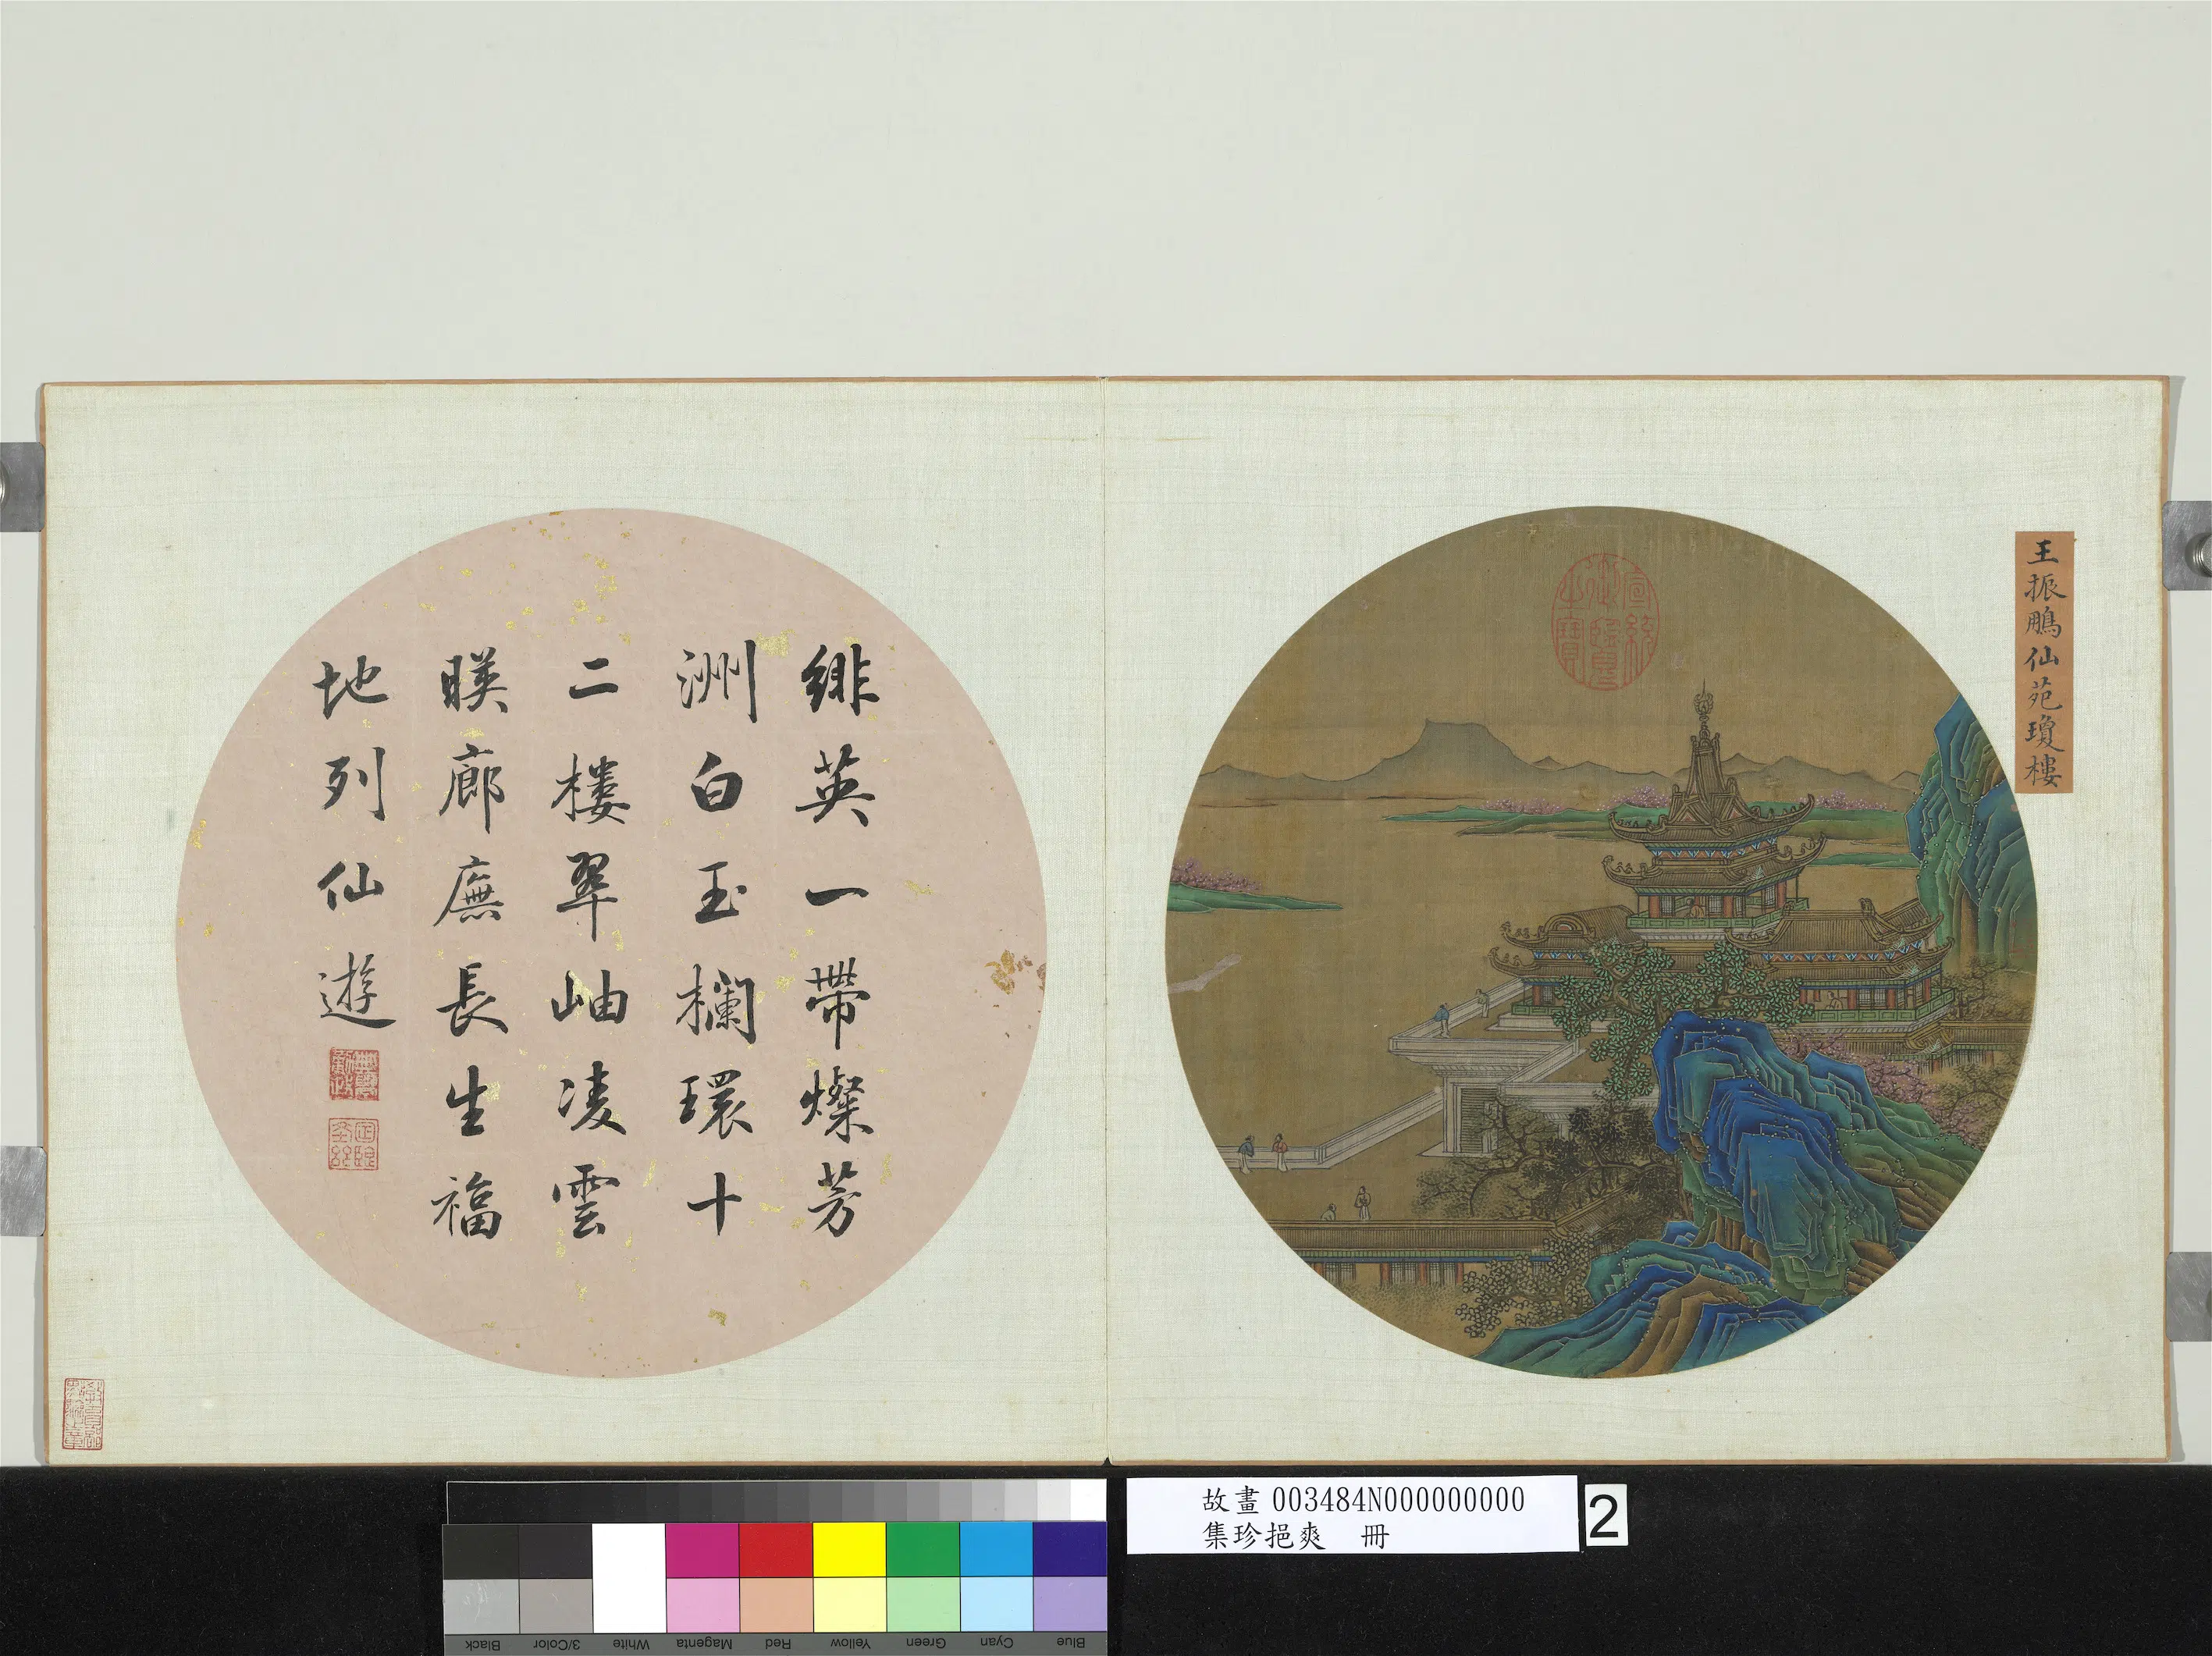 王振鵬仙苑瓊樓
宣統御覽之寶
緋英一帶燦芳
洲白玉欄環十
二樓翠岫凌雲
暎廊廡長生福
地列仙遊
故畫 003484N000000000
集珍挹爽 冊
2
Black
3/Color
White
Magenta
Red
Yellow
Green
Cyan
Blue